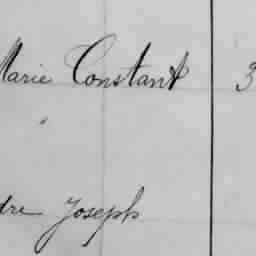 Marie Constant 3
"
dre Joseph